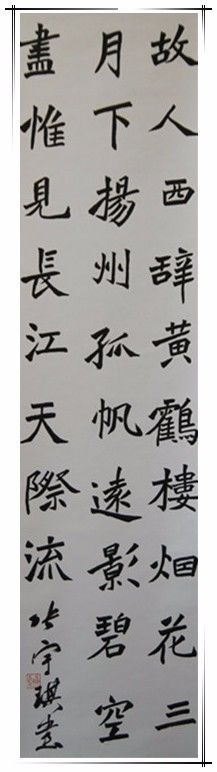 故人西辞黄鶴樓烟花三
月下揚州孤帆遠影碧空
盡惟見長江天際流
张宇琪書